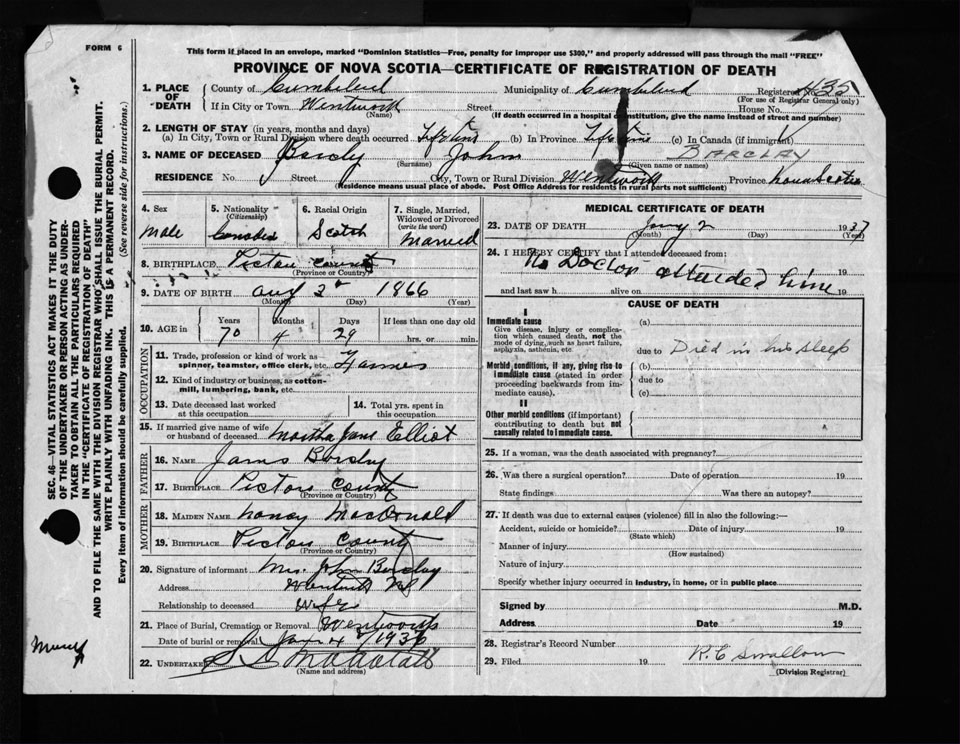 FORM 6
This form if placed in an envelope, marked "Dominion Statistics—Free, penalty for improper use $300," and properly addressed will pass through the mail "FREE"
PROVINCE OF NOVA SCOTIA—CERTIFICATE OF REGISTRATION OF DEATH
1. PLACE OF DEATH
County of Cumberland Municipality of Cumberland Registered No. 435
(For use of Registrar General only)
If in City or Town Wentworth Street House No.
(Name) (If death occurred in a hospital or institution, give the name instead of street and number)
2. LENGTH OF STAY (in years, months and days)
(a) In City, Town or Rural Division where death occurred Lifetime (b) In Province Lifetime (c) In Canada (if immigrant)
BARCLAY
3. NAME OF DECEASED John
(Surname) (Given name or names)
RESIDENCE No. Street City, Town or Rural Division Wentworth Province Nova Scotia
(Residence means usual place of abode. Post Office Address for residents in rural parts not sufficient)
4. Sex
Male
5. Nationality (Citizenship)
6. Racial Origin
Scotch
7. Single, Married, Widowed or Divorced (write the word)
Married
8. BIRTHPLACE Pictou County
(Province or Country)
9. DATE OF BIRTH Aug 2 1866
(Month) (Day) (Year)
10. AGE in
Years Months Days If less than one day old
70 4 29 hrs. or min.
OCCUPATION
11. Trade, profession or kind of work as spinner, teamster, office clerk, etc. Farmer
12. Kind of industry or business, as cotton-mill, lumbering, bank, etc.
13. Date deceased last worked at this occupation
14. Total yrs. spent in this occupation
15. If married give name of wife or husband of deceased Martha Jane Elliot
FATHER
16. NAME James Barclay
17. BIRTHPLACE Pictou County
(Province or Country)
MOTHER
18. MAIDEN NAME Nancy MacDonald
19. BIRTHPLACE Pictou County
(Province or Country)
20. Signature of informant Mrs. John Barclay
Address Wentworth NS
Relationship to deceased wife
21. Place of Burial, Cremation or Removal Wentworth
Date of burial or removal Jan 4 1936
22. UNDERTAKER
(Name and address)
MEDICAL CERTIFICATE OF DEATH
23. DATE OF DEATH Jany 2 1937
(Month) (Day) (Year)
24. I HEREBY CERTIFY that I attended deceased from:
No Doctor attended him 19
and last saw h alive on 19
CAUSE OF DEATH
I
Immediate cause
Give disease, injury or complication which caused death, not the mode of dying, such as heart failure, asphyxia, asthenia, etc.
(a)
due to Died in his sleep
Morbid conditions, if any, giving rise to immediate cause (stated in order proceeding backwards from immediate cause).
(b)
due to
(c)
II
Other morbid conditions (if important) contributing to death but not causally related to immediate cause.
25. If a woman, was the death associated with pregnancy?
26. Was there a surgical operation? Date of operation 19
State findings Was there an autopsy?
27. If death was due to external causes (violence) fill in also the following:—
Accident, suicide or homicide? Date of injury 19
(State which)
Manner of injury
(How sustained)
Nature of injury
Specify whether injury occurred in industry, in home, or in public place
Signed by M.D.
Address Date 19
28. Registrar's Record Number
29. Filed 19 R. C. Swallow
(Division Registrar)
SEC. 46—VITAL STATISTICS ACT MAKES IT THE DUTY
OF THE UNDERTAKER OR PERSON ACTING AS UNDER-
TAKER TO OBTAIN ALL THE PARTICULARS REQUIRED
IN THE "CERTIFICATE OF REGISTRATION OF DEATH"
AND TO FILE THE SAME WITH THE DIVISION REGISTRAR WHO SHALL ISSUE THE BURIAL PERMIT.
WRITE PLAINLY WITH UNFADING INK. THIS IS A PERMANENT RECORD.
Every item of information should be carefully supplied. (See reverse side for instructions.)